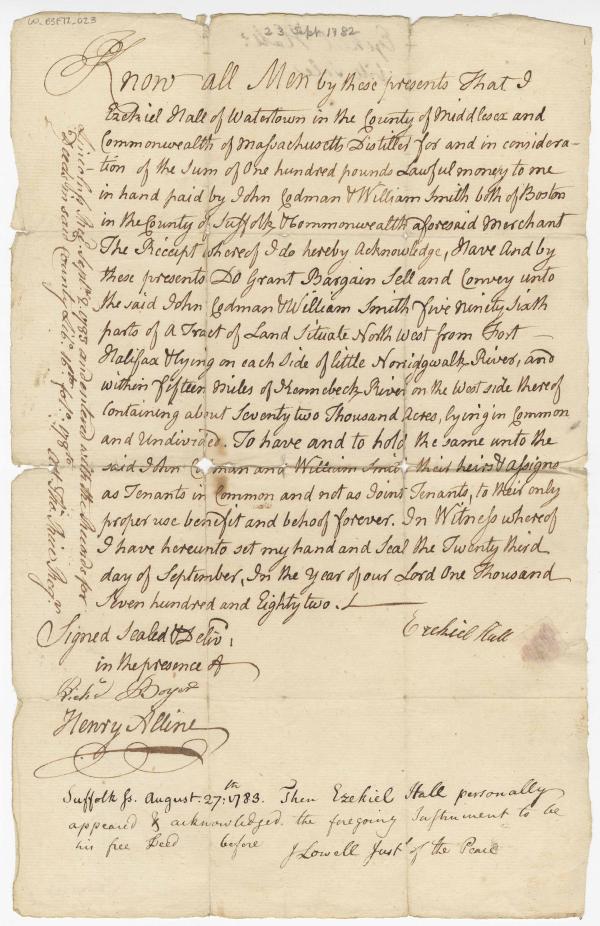 W_83F72_023
23 Sept 1782
Know all Men by these presents That I
Ezekiel Hall of Watertown in the County of Middlesex and
Commonwealth of Massachusetts Distiller for and in considera-
tion of the Sum of One hundred pounds Lawful money to me
in hand paid by John Codman & William Smith both of Boston
in the County of Suffolk & Commonwealth aforesaid Merchant
The Receipt whereof I do hereby Acknowledge, Have And by
these presents Do Grant Bargain Sell and Convey unto
the said John Codman & William Smith five ninety sixth
parts of A Tract of Land Situate North West from Fort
Halifax & lying on each Side of little Norridgwalk River, and
within Fifteen Miles of Kennebeck River on the West side thereof
Containing about Seventy two Thousand Acres, lying in Common
and Undivided. To have and to hold the same unto the
said John Codman and William Smith their heirs & assigns
as Tenants in Common and not as Joint Tenants, to their only
proper use benefit and behoof forever. In Witness whereof
I have hereunto set my hand and Seal the Twenty third
day of September, In the Year of our Lord One Thousand
Seven hundred and Eighty two.
Ezekiel Hall
Signed Sealed & Deliv:
in the presence of
Rich'd Boyer
Henry Alline
Suffolk Ss. August. 27:th 1783. Then Ezekiel Hall personally
appeared & acknowledged the foregoing Instrument to be
his free Deed before J Lowell Just. of the Peace
Lincoln Ss. Rec'd Sept 1783 and entered with the Records for
Deeds in said County